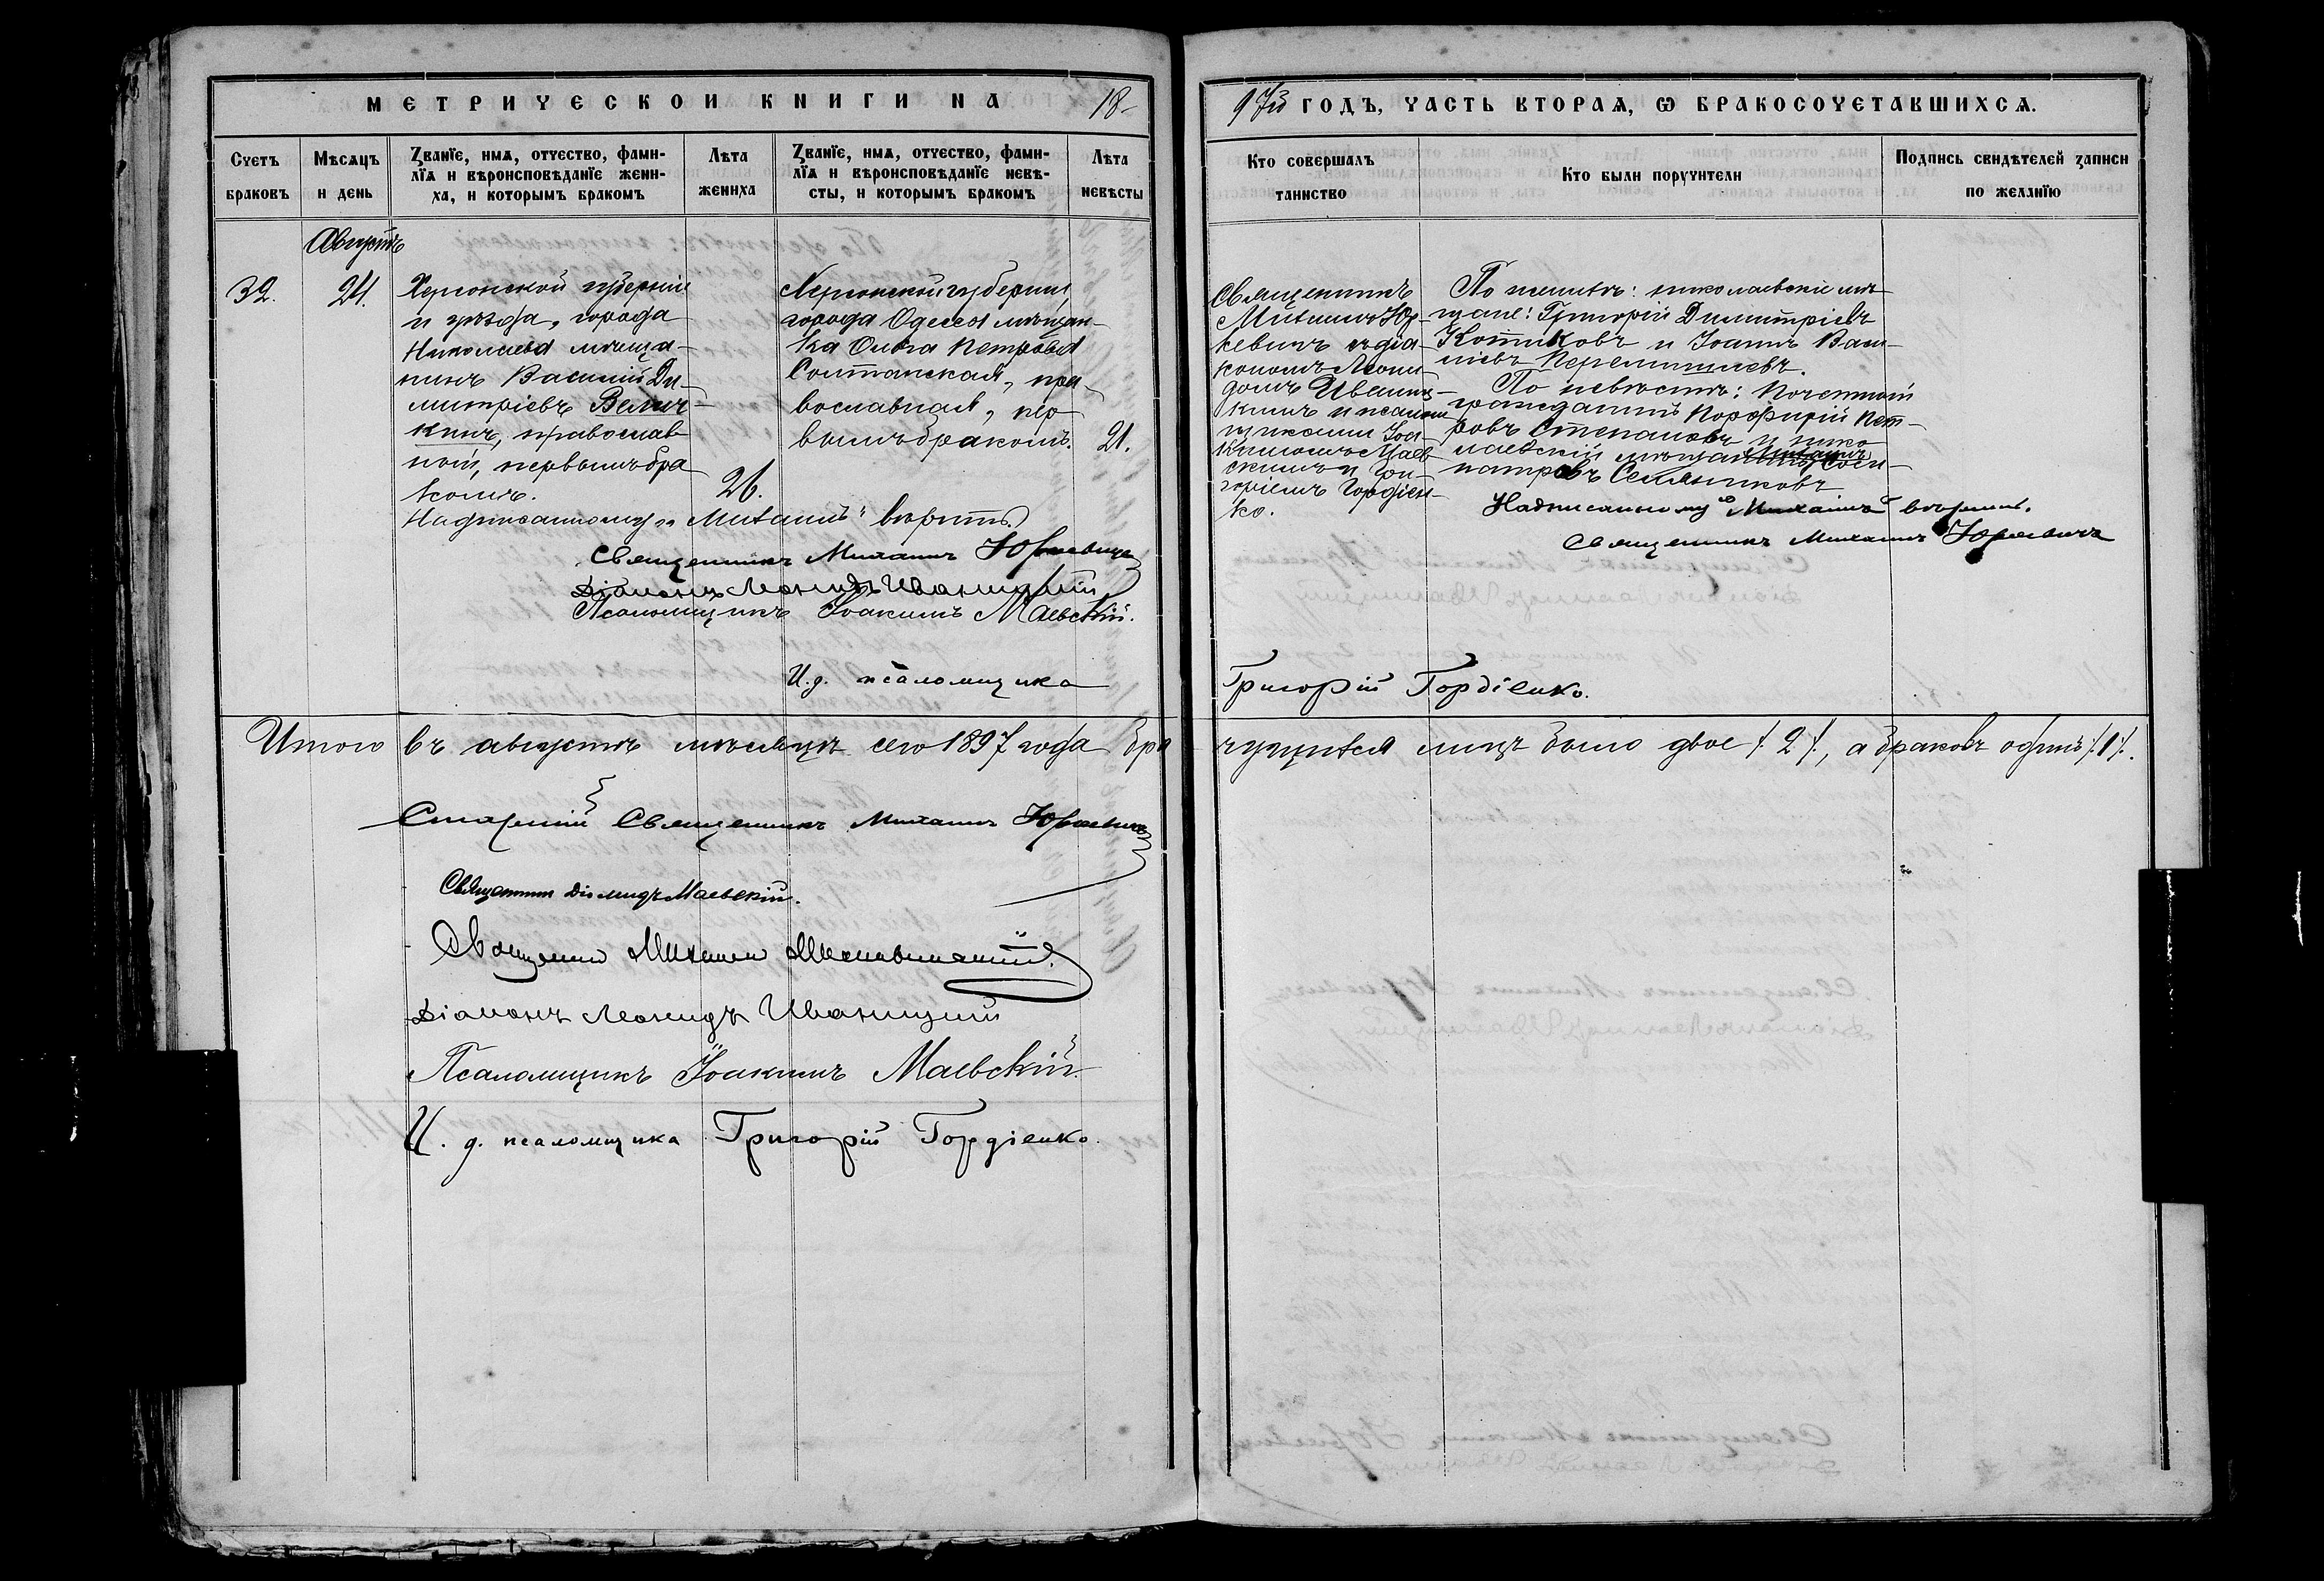 МЕТРИЧЕСКОЙ КНИГИ НА 18-
97й ГОДЪ, ЧАСТЬ ВТОРАѦ, Ѡ БРАКОСОЧЕТАВШИХСѦ.
Счетъ браковъ
Мѣсѧцъ и день
Званїе, имѧ, отчество, фами-
лїѧ и вѣроисповѣданїе жени-
ха, и которымъ бракомъ
Лѣта жениха
Званїе, имѧ, отчество, фами-
лїѧ и вѣроисповѣданїе невѣ-
сты, и которымъ бракомъ
Лѣта невѣсты
Кто совершалъ таинство
Кто были поручители
Подпись свидѣтелей записи
по желанїю
Августъ
32.
24.
Херсонской губерніи
и уѣзда, города
Николаева мѣща-
нинъ Василій Ди-
митріевъ Велич-
кинъ, православ-
ный, первымъ бра-
комъ.
26.
Херсонской губерніи,
города Одессы мѣщан-
ка Ольга Петрова
Солтанская, пра-
вославная, пер-
вымъ бракомъ.
21.
Священникъ
Михаилъ Юр-
кевичъ съ діа-
кономъ Леони-
домъ Иваниц-
кимъ и псалом-
щиками Іоа-
кимомъ Маев-
скимъ и Гри-
горіемъ Гордіен-
ко.
По женихѣ: николаевскіе мѣ-
щане: Григорій Димитріевъ
Котиковъ и Іоаннъ Васи-
ліевъ
По невѣстѣ: Почетный
гражданинъ Порфирій Пет-
ровъ Степановъ и нико-
лаевскій мѣщанинъ
Семянниковъ
Надписанному „Михаилъ“ вѣрить.
Священникъ Михаилъ Юркевичъ
Діаконъ Леонидъ Иваницкій
Псаломщикъ Іоакимъ Маевскій.
И.д. псаломщика
Надписанному „Михаилъ“ вѣрить.
Священникъ Михаилъ Юркевичъ
Григорій Гордіенко.
Итого въ августѣ мѣсяцѣ сего 1897 года бра-
чущихся лицъ было двое /.2/., а браковъ одинъ /.1/.
Старшій Священникъ Михаилъ Юркевичъ
Священникъ Діомидъ Маевскій.
Священникъ Михаилъ
Діаконъ Леонидъ Иваницкій
Псаломщикъ Іоакимъ Маевскій.
И. д. псаломщика Григорій Гордіенко.